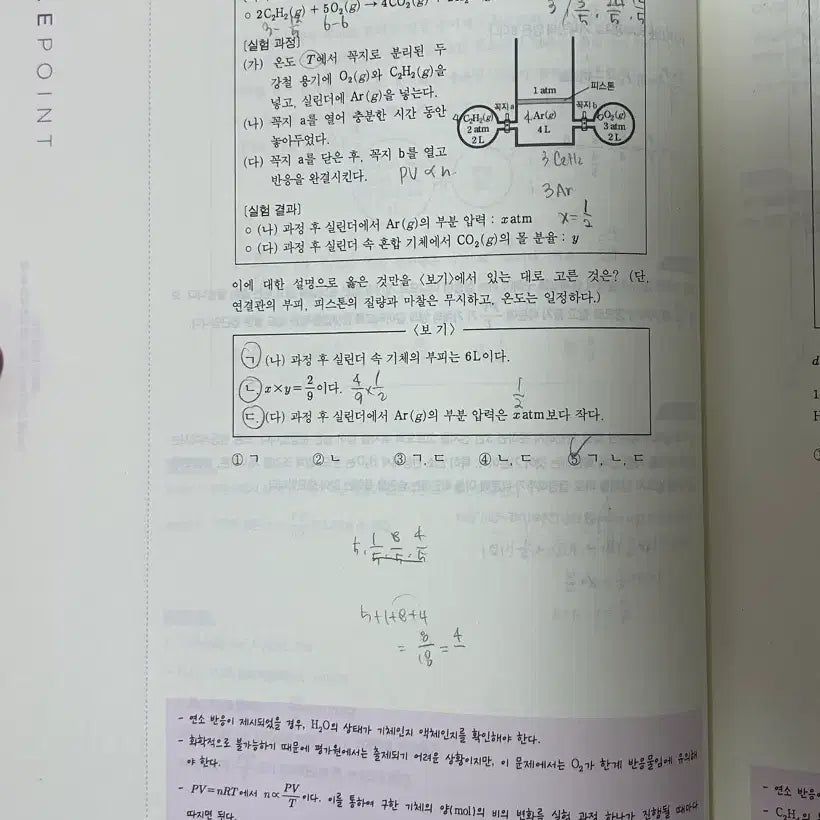 EPOINT
○ 2C₂H₂(g) + 5O₂(g) → 4CO₂(g) +
6-6
[실험 과정]
(가) 온도 T에서 꼭지로 분리된 두
강철 용기에 O₂(g)와 C₂H₂(g)을
넣고, 실린더에 Ar(g)을 넣는다.
(나) 꼭지 a를 열어 충분한 시간 동안
놓아두었다.
(다) 꼭지 a를 닫은 후, 꼭지 b를 열고
반응을 완결시킨다.
PV ∝ n.
1 atm
피스톤
꼭지 a
꼭지 b
C₂H₂(g)
2 atm
2 L
4. Ar(g)
4 L
O₂(g)
3 atm
2 L
3 C₂H₂
3 Ar
[실험 결과]
○ (나) 과정 후 실린더에서 Ar(g)의 부분 압력 : x atm
x = 1/2
○ (다) 과정 후 실린더 속 혼합 기체에서 CO₂(g)의 몰 분율 : y
이에 대한 설명으로 옳은 것만을 〈보기〉에서 있는 대로 고른 것은? (단,
연결관의 부피, 피스톤의 질량과 마찰은 무시하고, 온도는 일정하다.)
〈보 기〉
ㄱ. (나) 과정 후 실린더 속 기체의 부피는 6 L이다.
ㄴ. x×y = 2/9이다. 4/9 × 1/2
1/2
ㄷ. (다) 과정 후 실린더에서 Ar(g)의 부분 압력은 x atm보다 작다.
① ㄱ ② ㄴ ③ ㄱ, ㄷ ④ ㄴ, ㄷ ⑤ ㄱ, ㄴ, ㄷ
5+1+8+4
= 8/18 = 4
- 연소 반응이 제시되었을 경우, H₂O의 상태가 기체인지 액체인지를 확인해야 한다.
- 화학적으로 불가능하기 때문에 평가원에서는 출제되기 어려운 상황이지만, 이 문제에서는 O₂가 한계 반응물임에 유의해
야 한다.
- PV=nRT에서 n∝PV/T이다. 이를 통하여 구한 기체의 양(mol)의 비의 변화를 실험 과정 하나가 진행될 때마다
따지면 된다.
- 연소 반응
- C₂H₂의